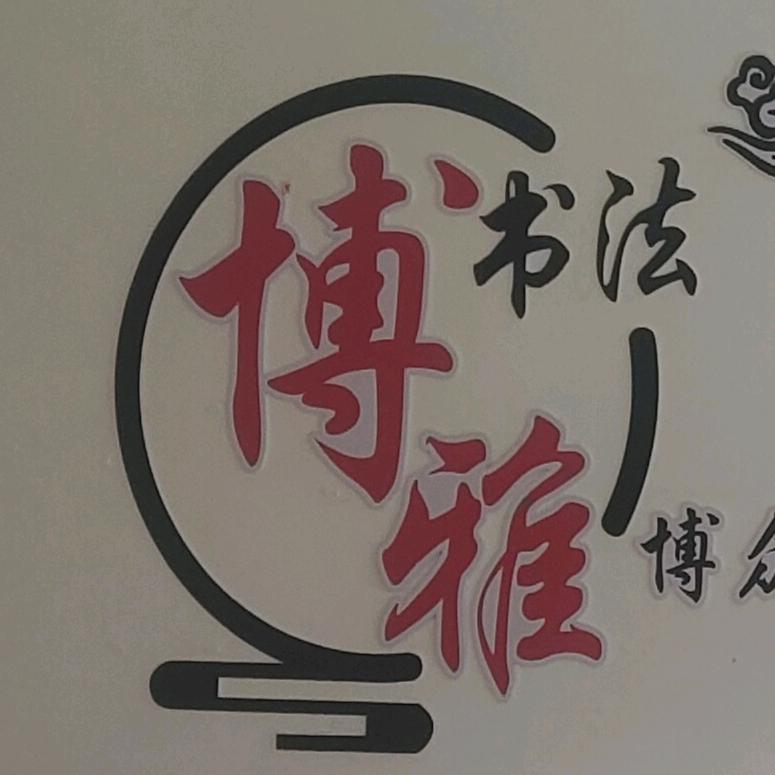 博雅
书法
博